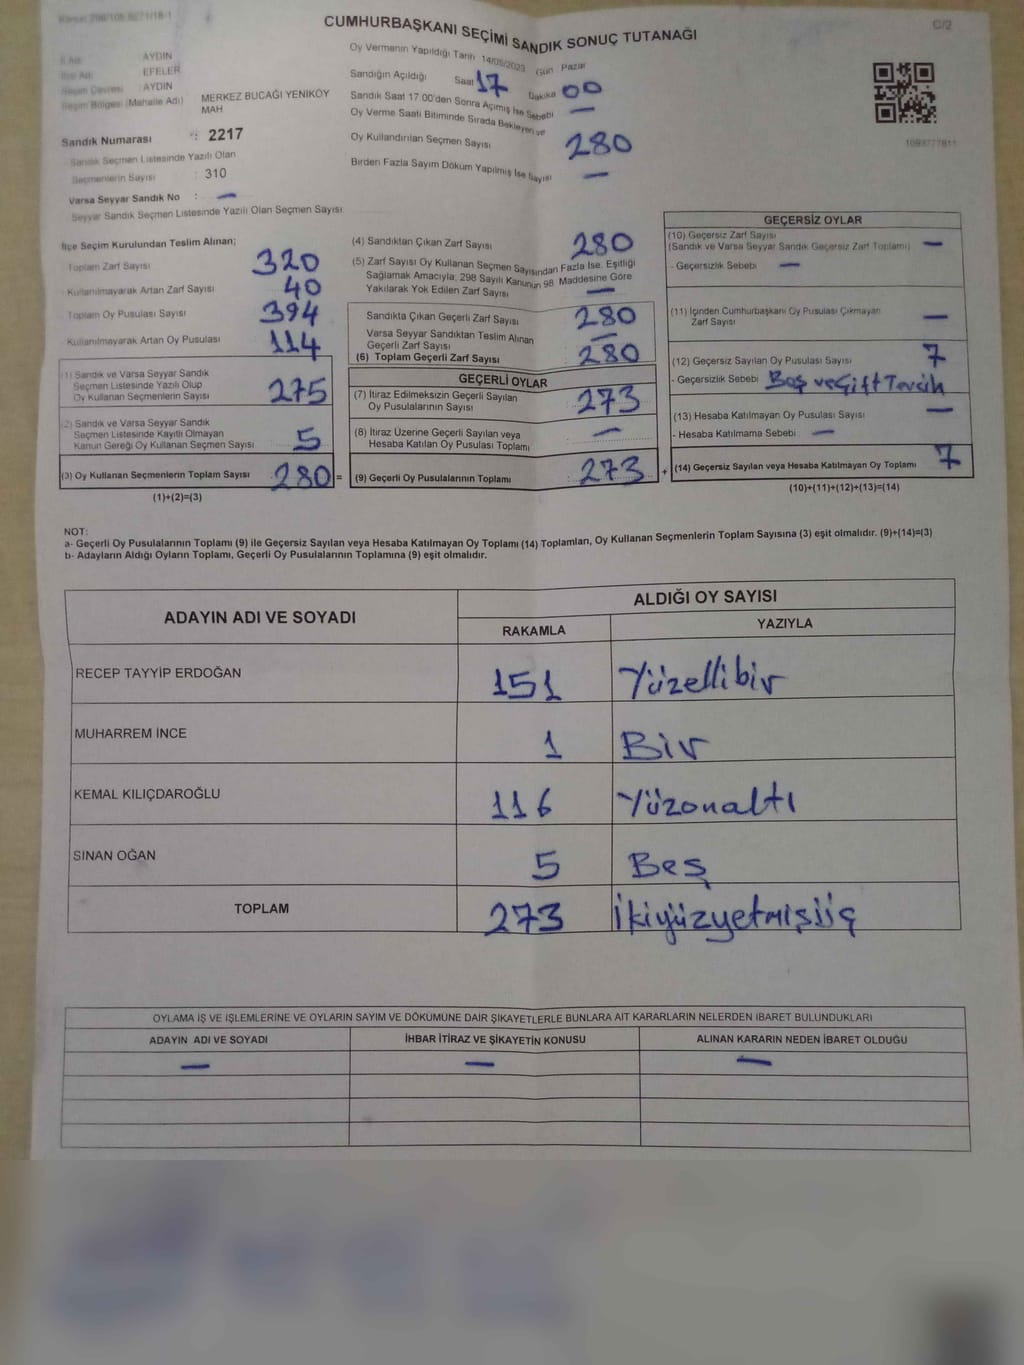 CUMHURBAŞKANI SEÇİMİ SANDIK SONUÇ TUTANAĞI
C/2
İl Adı : AYDIN
İlçe Adı : EFELER
Seçim Çevresi : AYDIN
Seçim Bölgesi (Mahalle Adı) MERKEZ BUCAĞI YENİKÖY MAH
Sandık Numarası : 2217
Sandık Seçmen Listesinde Yazılı Olan
Seçmenlerin Sayısı : 310
Varsa Seyyar Sandık No : —
Seyyar Sandık Seçmen Listesinde Yazılı Olan Seçmen Sayısı:
Oy Vermenin Yapıldığı Tarih 14/05/2023 Gün Pazar
Sandığın Açıldığı Saat 17 Dakika 00
Sandık Saat 17.00'den Sonra Açılmış İse Sebebi —
Oy Verme Saati Bitiminde Sırada Bekleyen ve
Oy Kullandırılan Seçmen Sayısı 280
Birden Fazla Sayım Döküm Yapılmış İse Sayısı —
1093777811
İlçe Seçim Kurulundan Teslim Alınan;
Toplam Zarf Sayısı 320
Kullanılmayarak Artan Zarf Sayısı 40
Toplam Oy Pusulası Sayısı 394
Kullanılmayarak Artan Oy Pusulası 114
(1) Sandık ve Varsa Seyyar Sandık
Seçmen Listesinde Yazılı Olup
Oy Kullanan Seçmenlerin Sayısı 275
(2) Sandık ve Varsa Seyyar Sandık
Seçmen Listesinde Kayıtlı Olmayan
Kanun Gereği Oy Kullanan Seçmen Sayısı 5
(3) Oy Kullanan Seçmenlerin Toplam Sayısı 280 =
(1)+(2)=(3)
(4) Sandıktan Çıkan Zarf Sayısı 280
(5) Zarf Sayısı Oy Kullanan Seçmen Sayısından Fazla İse, Eşitliği
Sağlamak Amacıyla; 298 Sayılı Kanunun 98. Maddesine Göre
Yakılarak Yok Edilen Zarf Sayısı —
Sandıkta Çıkan Geçerli Zarf Sayısı 280
Varsa Seyyar Sandıktan Teslim Alınan
Geçerli Zarf Sayısı —
(6) Toplam Geçerli Zarf Sayısı 280
GEÇERLİ OYLAR
(7) İtiraz Edilmeksizin Geçerli Sayılan
Oy Pusulalarının Sayısı 273
(8) İtiraz Üzerine Geçerli Sayılan veya
Hesaba Katılan Oy Pusulası Toplamı —
(9) Geçerli Oy Pusulalarının Toplamı 273 +
GEÇERSİZ OYLAR
(10) Geçersiz Zarf Sayısı
(Sandık ve Varsa Seyyar Sandık Geçersiz Zarf Toplamı) —
- Geçersizlik Sebebi —
(11) İçinden Cumhurbaşkanı Oy Pusulası Çıkmayan
Zarf Sayısı —
(12) Geçersiz Sayılan Oy Pusulası Sayısı 7
- Geçersizlik Sebebi Boş ve Çift Tercih
(13) Hesaba Katılmayan Oy Pusulası Sayısı —
- Hesaba Katılmama Sebebi —
(14) Geçersiz Sayılan veya Hesaba Katılmayan Oy Toplamı 7
(10)+(11)+(12)+(13)=(14)
NOT:
a- Geçerli Oy Pusulalarının Toplamı (9) ile Geçersiz Sayılan veya Hesaba Katılmayan Oy Toplamı (14) Toplamları, Oy Kullanan Seçmenlerin Toplam Sayısına (3) eşit olmalıdır. (9)+(14)=(3)
b- Adayların Aldığı Oyların Toplamı, Geçerli Oy Pusulalarının Toplamına (9) eşit olmalıdır.
ADAYIN ADI VE SOYADI
ALDIĞI OY SAYISI
RAKAMLA YAZIYLA
RECEP TAYYİP ERDOĞAN 151 Yüzellibir
MUHARREM İNCE 1 Bir
KEMAL KILIÇDAROĞLU 116 Yüzonaltı
SİNAN OĞAN 5 Beş
TOPLAM 273 İkiyüzyetmişüç
OYLAMA İŞ VE İŞLEMLERİNE VE OYLARIN SAYIM VE DÖKÜMÜNE DAİR ŞİKAYETLERLE BUNLARA AİT KARARLARIN NELERDEN İBARET BULUNDUKLARI
ADAYIN ADI VE SOYADI İHBAR İTİRAZ VE ŞİKAYETİN KONUSU ALINAN KARARIN NEDEN İBARET OLDUĞU
— — —